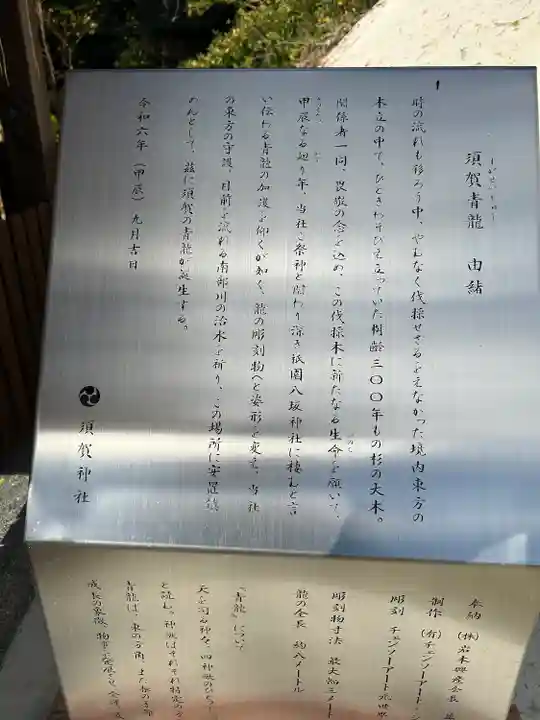 須賀青龍 由緒
時の流れも移ろう中、やんなく伐採せざるをえなかった境内東方の
木立の中で、ひときわそびえ立っていた樹齢三〇〇年もの杉の大木。
関係者一同、畏敬の念を込め、この伐採木に新たなる生命を願いて、
甲辰なる廻り年、当社ご祭神と関わり深き祇園八坂神社に棲むと言
い伝わる青龍の加護を仰ぐが如く、龍の彫刻物へと姿形を変え、当社
の東方の守護、目前を流れる南部川の治水を祈り、この場所に安置鎮
めんとして、茲に須賀の青龍が誕生する。
令和六年（甲辰）九月吉日
須賀神社
奉納 （株）岩本興産会長
制作 （有）チェンソーアート・
彫刻 チェンソーアート
彫刻物寸法 最大幅三メート
龍の全長 約八メートル
「青龍」について
天を司る神々、四神獣のひとつ
と読み、神獣はそれぞれ特定の
青龍は、東の方角、また
成長の象徴、物事を発展させ